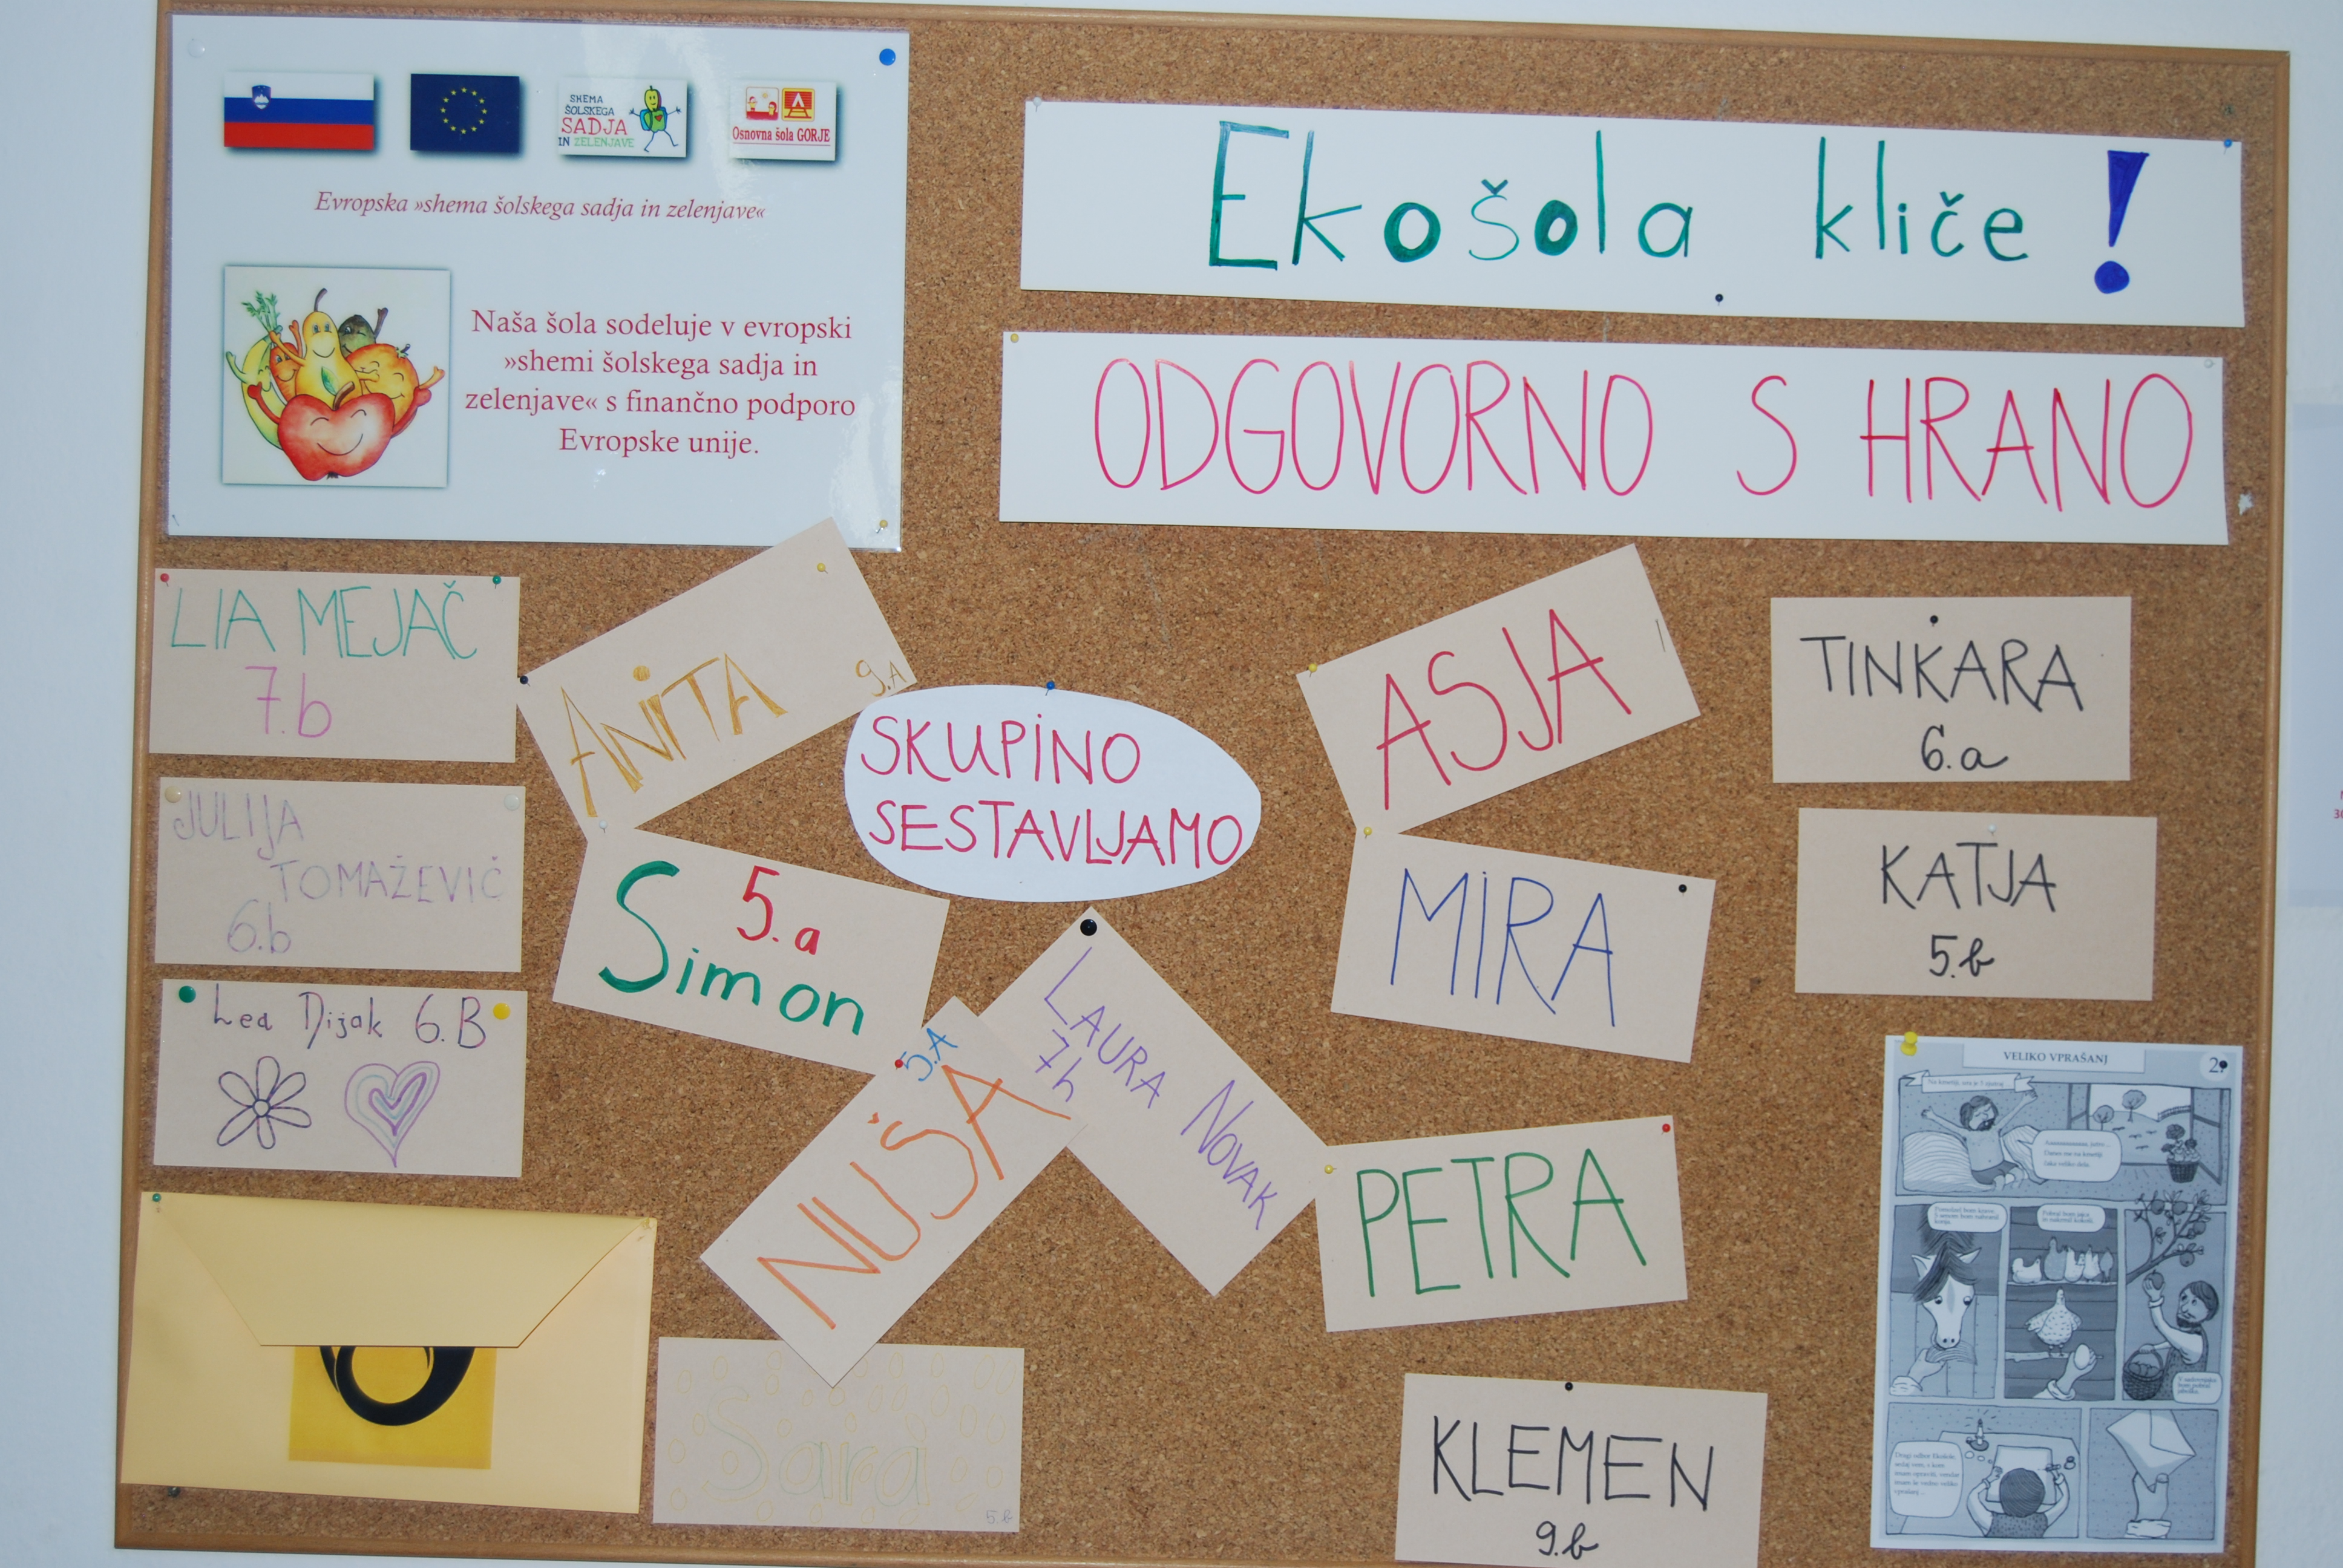 SHEMA
ŠOLSKEGA
SADJA
IN ZELENJAVE
Osnovna šola GORJE
Evropska »shema šolskega sadja in zelenjave«
Naša šola sodeluje v evropski
»shemi šolskega sadja in
zelenjave« s finančno podporo
Evropske unije.
Ekošola kliče!
ODGOVORNO S HRANO
LIA MEJAČ
7.b
ANITA
9.A
SKUPINO
SESTAVLJAMO
ASJA
TINKARA
6.a
JULIJA
TOMAŽEVIČ
6.b
5.a
Simon
MIRA
KATJA
5.b
Lea Dijak 6.B
5.A
NUŠA
LAURA NOVAK
7b
PETRA
Sara
5.b
KLEMEN
9.b
VELIKO VPRAŠANJ
2